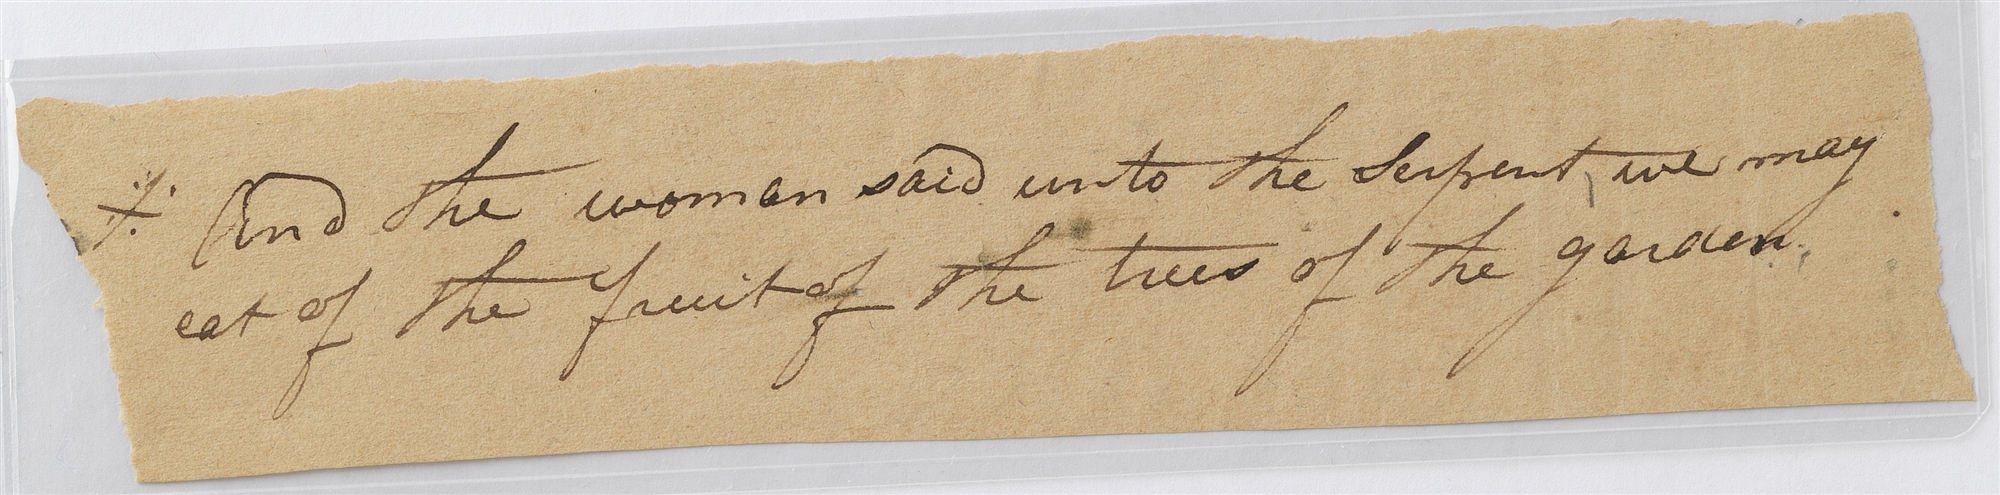 ⁒ And the woman said unto the Serpent, we may
eat of the fruit of the trees of the garden.